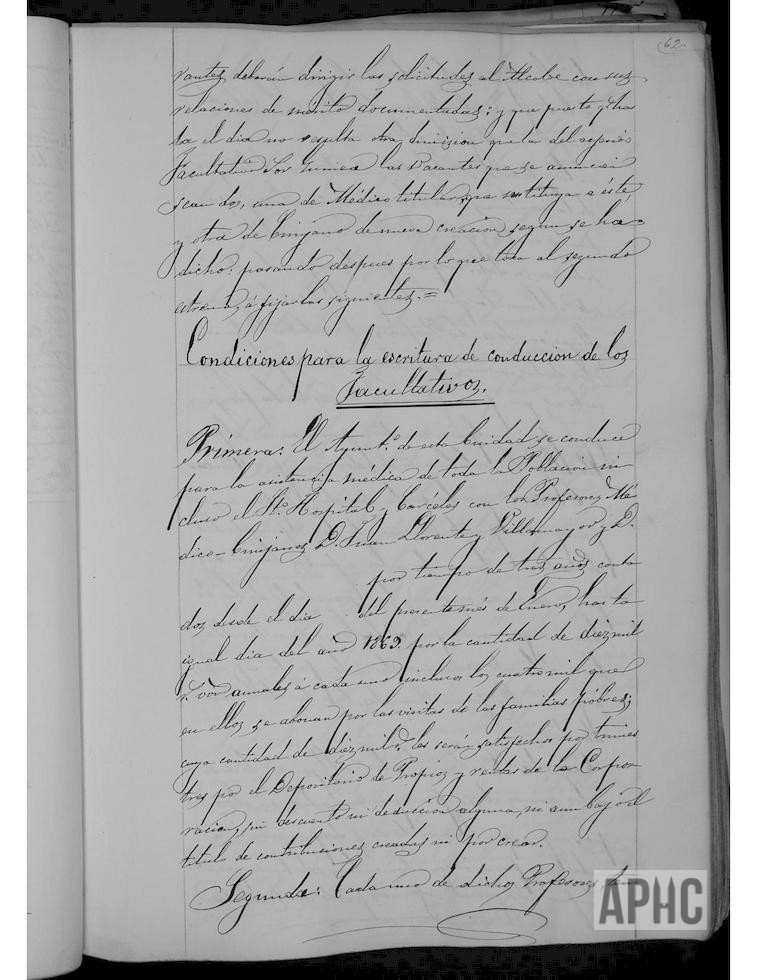 62.
rantes deberán dirigir las solicitudes al Alcalde con sus
relaciones de mérito documentadas: y que puesto q.e has
ta el dia no resulta otra dimision que la del
Facultativo Sor las vacantes que se anuncien
sean dos, una de Médico titular que sustituya a éste
y otra de Cirujano de nueva creacion segun se ha
dicho: pasando despues por lo que toca al segundo
estremo, á fijar las siguientes.=
Condiciones para la escritura de conduccion de los
Facultativos.
Primera. El Ayunt.o de esta Ciudad se conduce
para la asistencia médica de toda la Poblacion in
cluso el S.to Hospital y Carceles con los Profesores Mé
dico-Cirujanos D. Juan Llorente y Villamayor y D.
por tiempo de tres años conta
dos desde el dia del presente més de Enero, hasta
igual dia del año 1863. por la cantidad de diez mil
r.s von anuales á cada uno inclusos los cuatro mil que
en ellos se abonan por las visitas de las familias póbres;
cuya cantidad de diez mil r.s les serán satisfechos por trimes
tres por el Depositario de Propios y rentas de la Corpo
racion, sin descuento ni deduccion alguna, ni aun bajo el
titulo de contribuciones creadas ni por crear.
Segunda: Cada uno de dichos Profesores ten
APHC